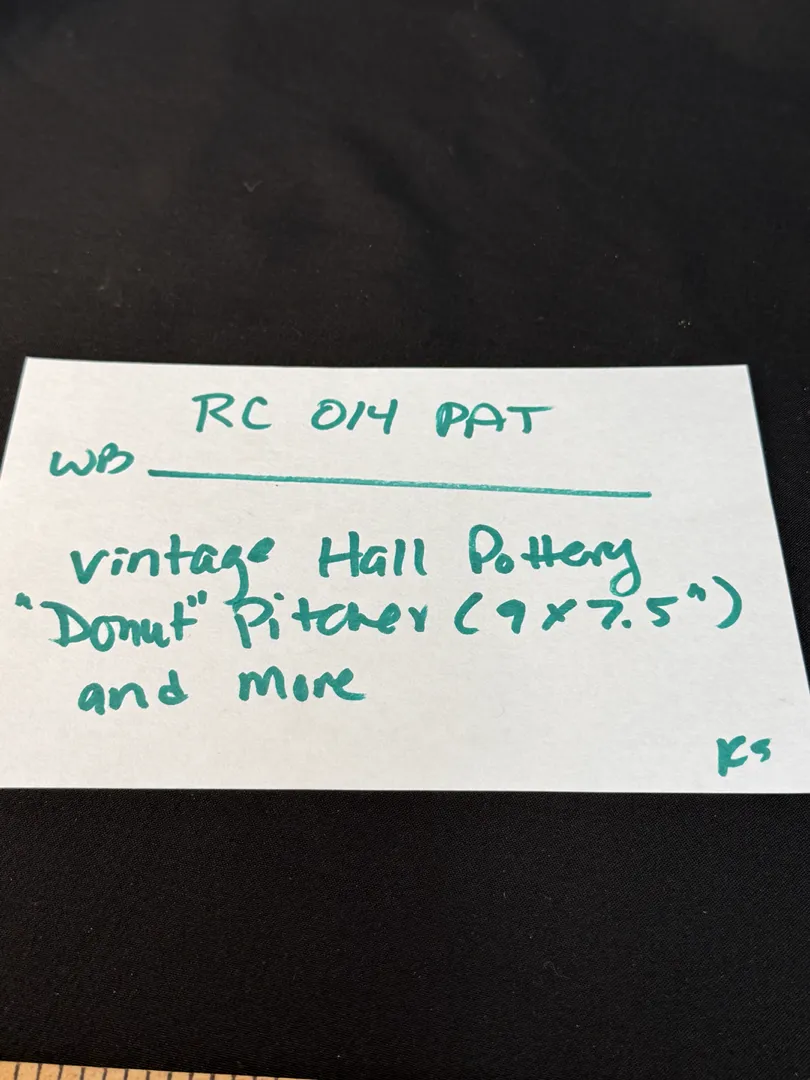 RC 014 PAT
WB
vintage Hall Pottery
"Donut" Pitcher (9 x 7.5")
and more
KS